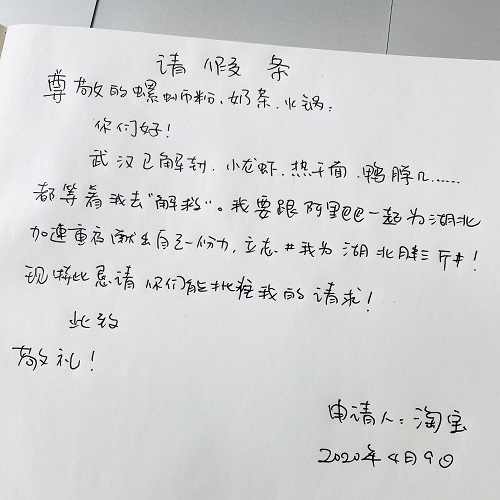 请假条
尊敬的螺蛳粉、奶茶、火锅:
你们好!
武汉已解封,小龙虾、热干面、鸭脖儿......
都等着我去"解救"。我要跟阿里巴巴一起为湖北
加速重启献出自己一份力,立志#我为湖北胖三斤#!
现特此恳请你们能批准我的请求!
此致
敬礼!
申请人:淘宝
2020年4月9日